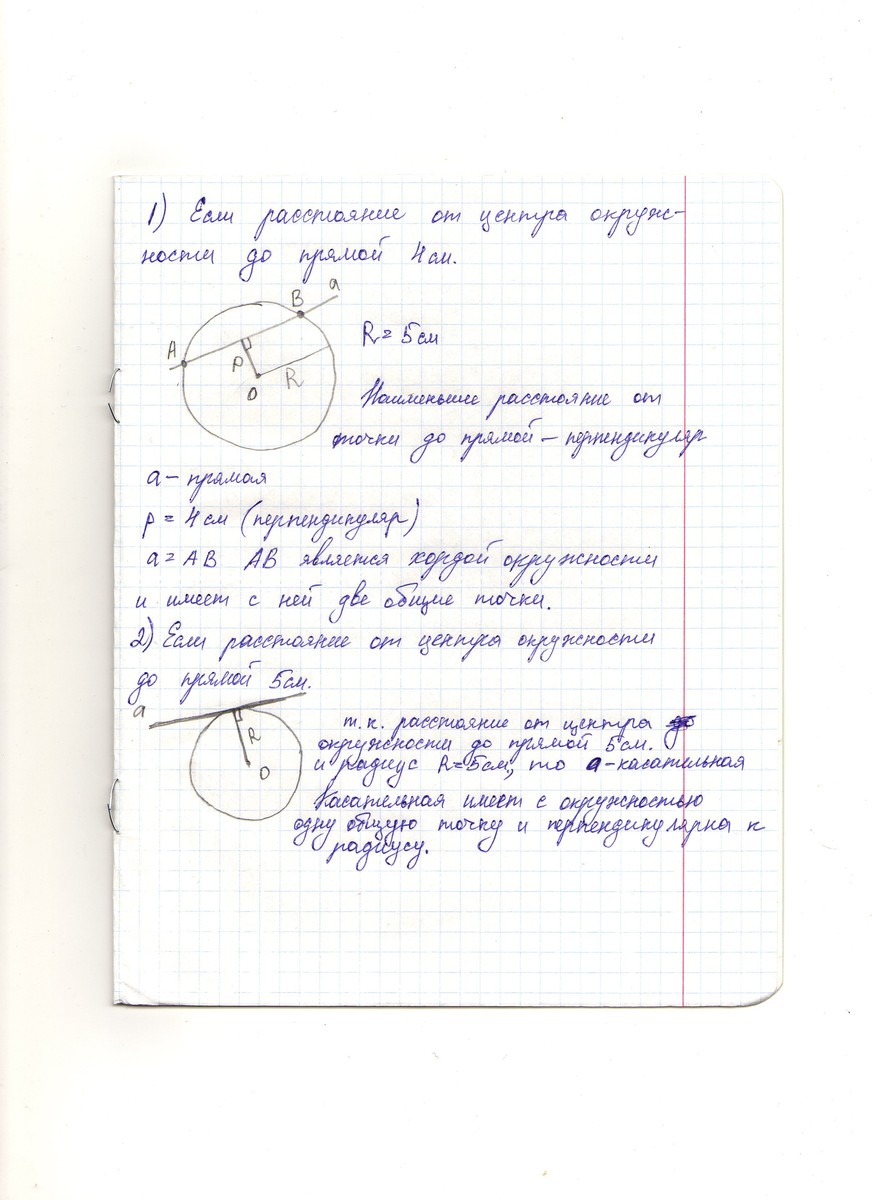 1) Если расстояние от центра окруж-
ности до прямой 4 см.
a
B
A
R = 5 см
P
R
O
Наименьшее расстояние от
точки до прямой – перпендикуляр
a – прямая
p = 4 см (перпендикуляр)
a = AB AB является хордой окружности
и имеет с ней две общие точки.
2) Если расстояние от центра окружности
до прямой 5 см.
a
R
O
т.к. расстояние от центра
окружности до прямой 5 см.
и радиус R = 5 см, то a – касательная
Касательная имеет с окружностью
одну общую точку и перпендикулярна к
радиусу.